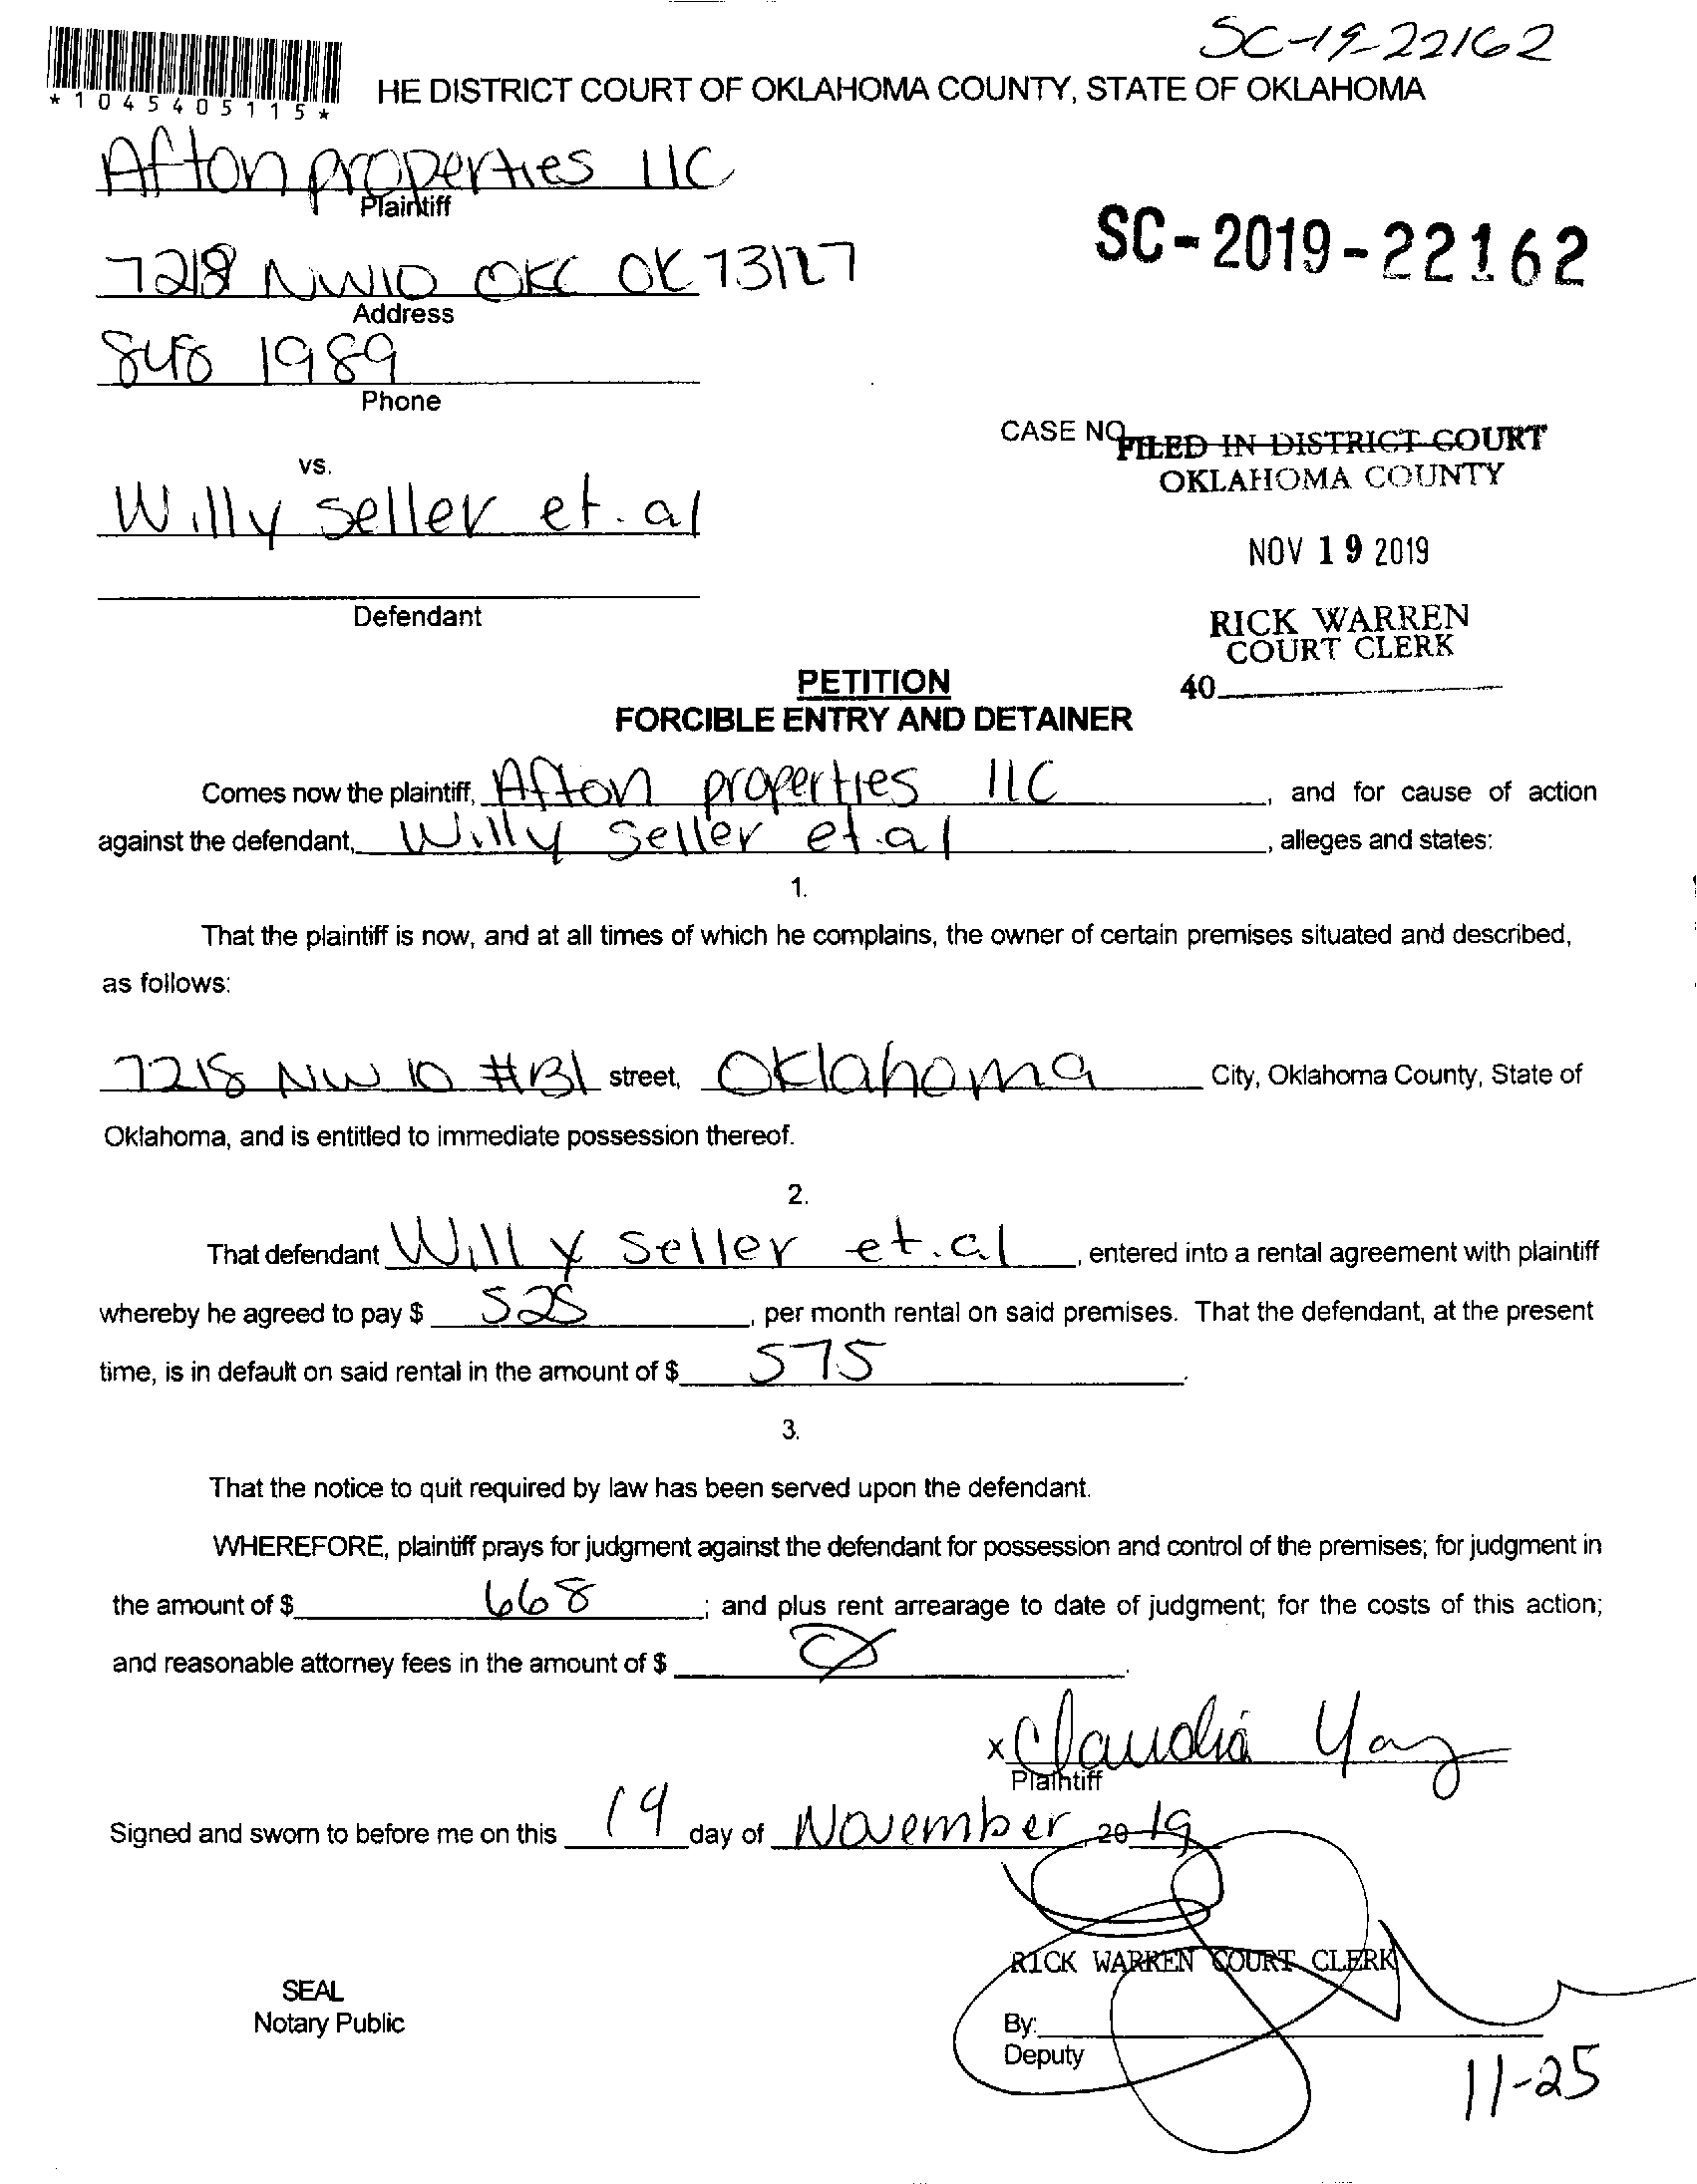 SC-19-22162
*1045405115*
HE DISTRICT COURT OF OKLAHOMA COUNTY, STATE OF OKLAHOMA
Afton properties llC
Plaintiff
SC-2019-22162
7218 NW10 OKC OK 73127
Address
848 1989
Phone
CASE NO.
FILED IN DISTRICT COURT
OKLAHOMA COUNTY
vs.
Willy Seller et.al
NOV 19 2019
Defendant
RICK WARREN
COURT CLERK
40
PETITION
FORCIBLE ENTRY AND DETAINER
Comes now the plaintiff, Afton properties llC, and for cause of action
against the defendant, Willy Seller et.al, alleges and states:
1.
That the plaintiff is now, and at all times of which he complains, the owner of certain premises situated and described,
as follows:
7218 NW 10 #B1 street, Oklahoma City, Oklahoma County, State of
Oklahoma, and is entitled to immediate possession thereof.
2.
That defendant Willy Seller et.al, entered into a rental agreement with plaintiff
whereby he agreed to pay $ 525, per month rental on said premises. That the defendant, at the present
time, is in default on said rental in the amount of $ 575.
3.
That the notice to quit required by law has been served upon the defendant.
WHEREFORE, plaintiff prays for judgment against the defendant for possession and control of the premises; for judgment in
the amount of $ 668; and plus rent arrearage to date of judgment; for the costs of this action;
and reasonable attorney fees in the amount of $
x Claudia Yaz
Plaintiff
Signed and sworn to before me on this 19 day of November, 20 19
RICK WARREN COURT CLERK
SEAL
Notary Public
By:
Deputy
11-25